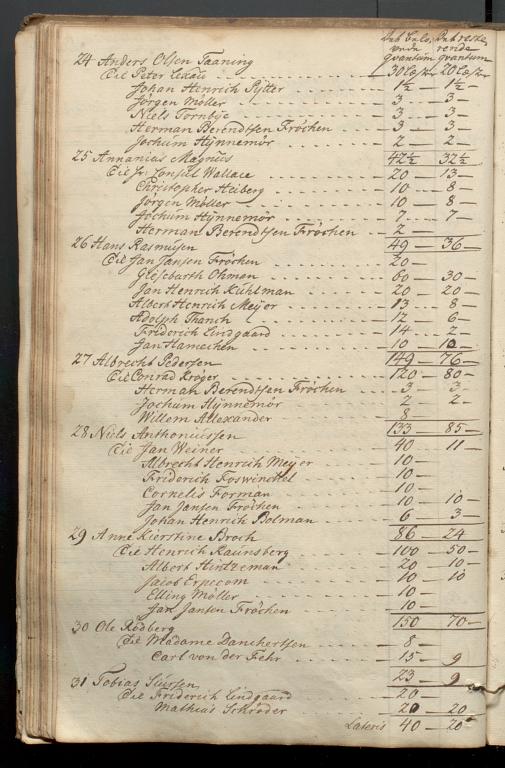 Dab belø, Dab reste
vede rende
24 Anders Olsen Taaning qvantum qvantum
Til Peter Lexau - 30 Læster 20 Læster
Johan Henrich Pÿtter 1½ — 1½ —
Jørgen Møller 3 — 3 —
Niels Tornbÿe 3 — 3 —
Herman Berendtsen Frøchen 3 — 3 —
Jochum Hÿnnemør 2 — 2 —
25 Annanias Magnus 42½ 32½
Til Hr: Consul Wallace 20 — 13 —
Christopher Heiberg 10 — 8 —
Jørgen Møller 10 — 8 —
Jochum Hÿnnemør 7 — 7 —
Herman Berendtsen Frøchen 2 —
26 Hans Rasmusen 49 — 36 —
Til Jan Jansen Frøchen 20 —
Gieseburth Ohman 60 — 30 —
Jan Henrich Kuhlman 20 — 20 —
Albert Henrich Meÿer 13 — 8 —
Adolph Tharich 12 — 6 —
Friderich Lindgaard 14 — 2 —
Jan Hamechen 10 — 10 —
27 Albrecht Pedersen 149 — 76 —
Til Conrad Krøger 120 — 80 —
Herman Berendtsen Frøchen 3 — 3 —
Jochum Hÿnnemør 2 — 2 —
Willem Allexander 8 —
28 Niels Anthoniussen 133 85 —
Til Jan Weiner 40 11 —
Albrecht Henrich Meÿer 10 —
Friderich Foswinckel 10 —
Cornelis Forman 10 —
Jan Jansen Frøchen 10 — 10 —
Johan Henrich Bolman 6 — 3 —
29 Anne Kierstine Broch 86 — 24
Til Henrich Raunsberg 100 — 50 —
Albert Hintzeman 20 — 10 —
Jacob Erpecom 10 — 10
Elling Møller 10 —
Jan Jansen Frøchen 10 —
30 Ole Rødberg 150 70 —
Til Madame Danchertsen 8 —
Carl von der Fehr 15 — 9
31 Tobias Siursen 23 — 9
Til Friderich Lindgaard 20 —
Mathias Schrøder 20 — 20
Lateris 40 — 20